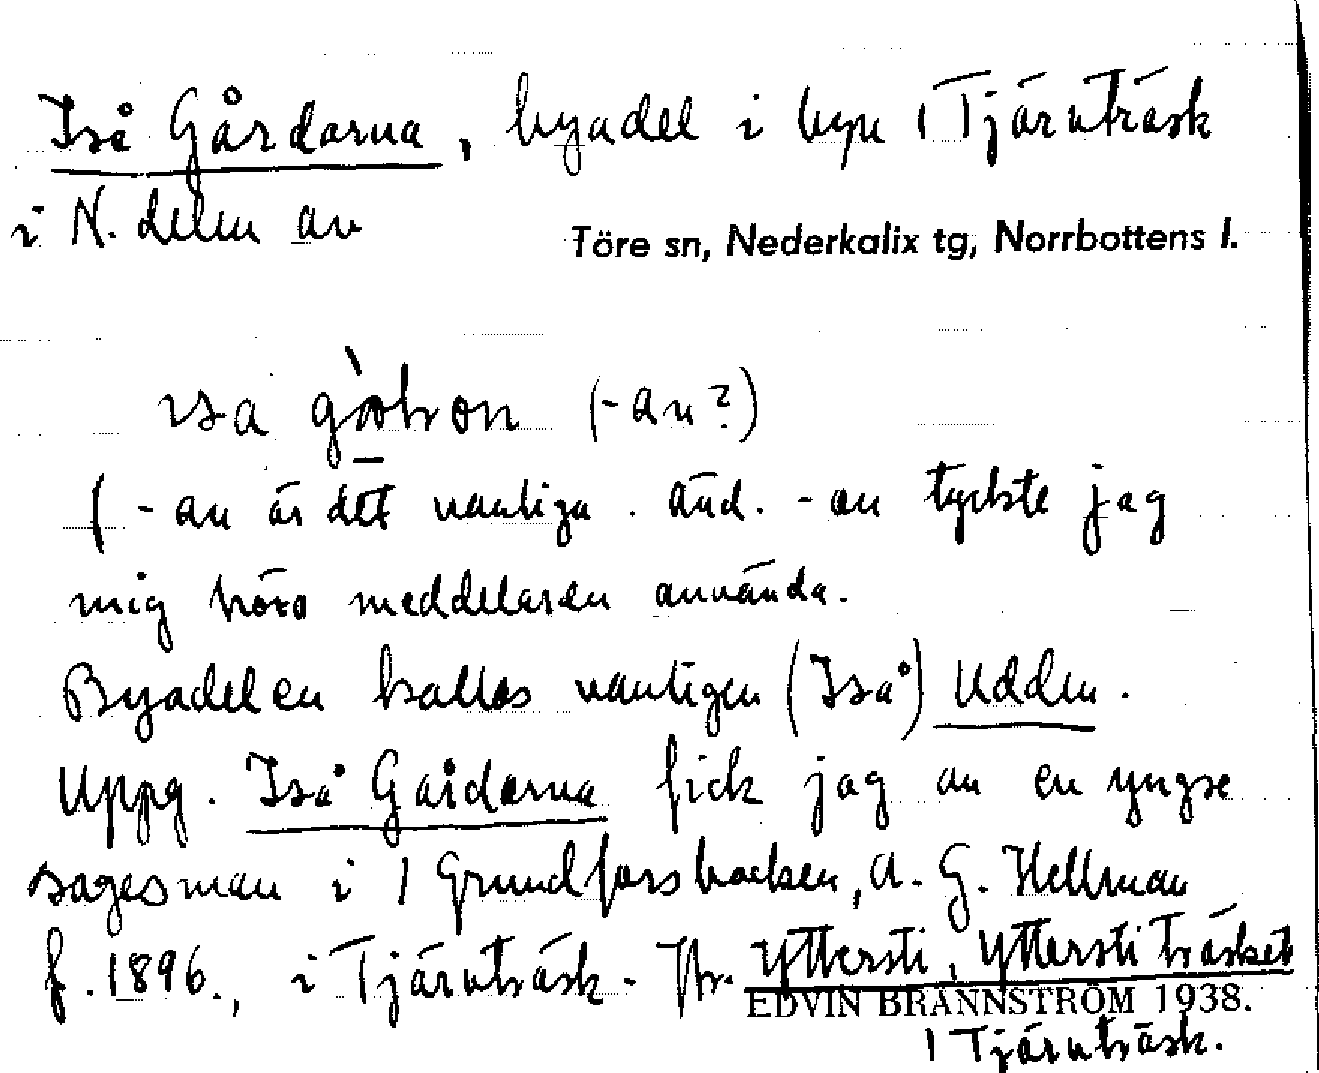 Iså Gårdarna, byadel i byn 1 Tjärnträsk
i N. delen av
Töre sn, Nederkalix tg, Norrbottens l.
ɪsa (-an?)
(-an är det vanliga. Änd. -on tyckte jag
mig höra meddelaren använda.
Byadelen kallas vanligen (Iså) Udden.
Uppg. Iså Gårdarna fick jag av en yngre
sagesman i 1 Grundforsbacken, A. G. Hellman
f. 1896., i Tjärnträsk. Jfr. Yttersti, Yttersti träsket
EDVIN BRÄNNSTRÖM 1938.
1 Tjärnträsk.